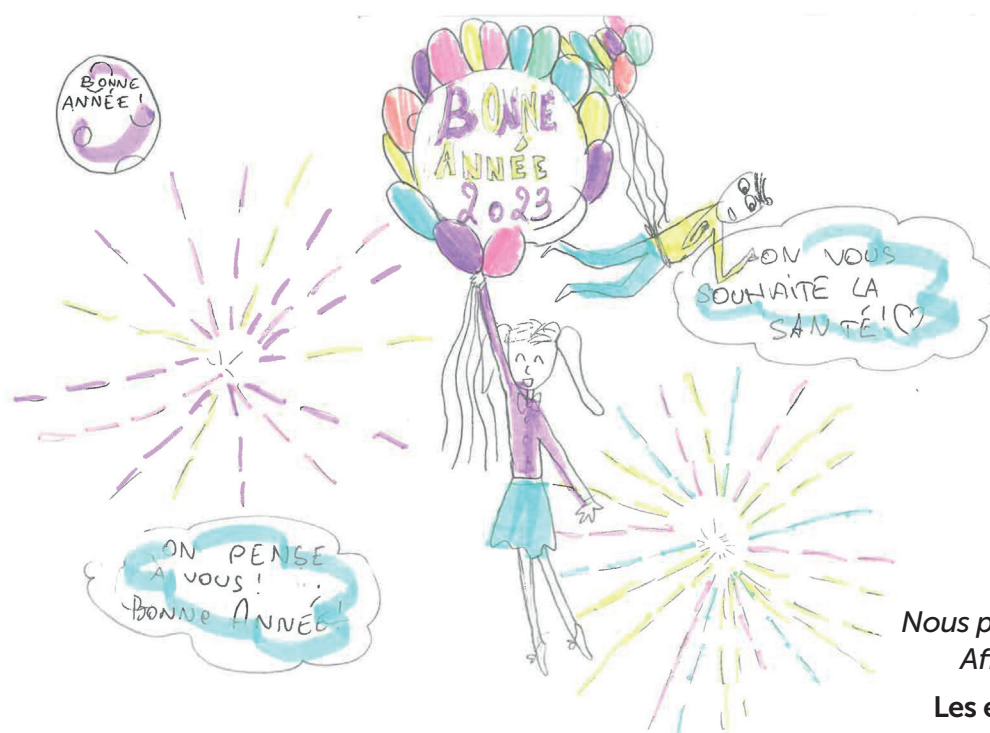 BONNE
ANNÉE !
BONNE
ANNÉE
2023
ON VOUS
SOUHAITE LA
SANTÉ !
ON PENSE
À VOUS !
BONNE ANNÉE !
Nous p
Af
Les e